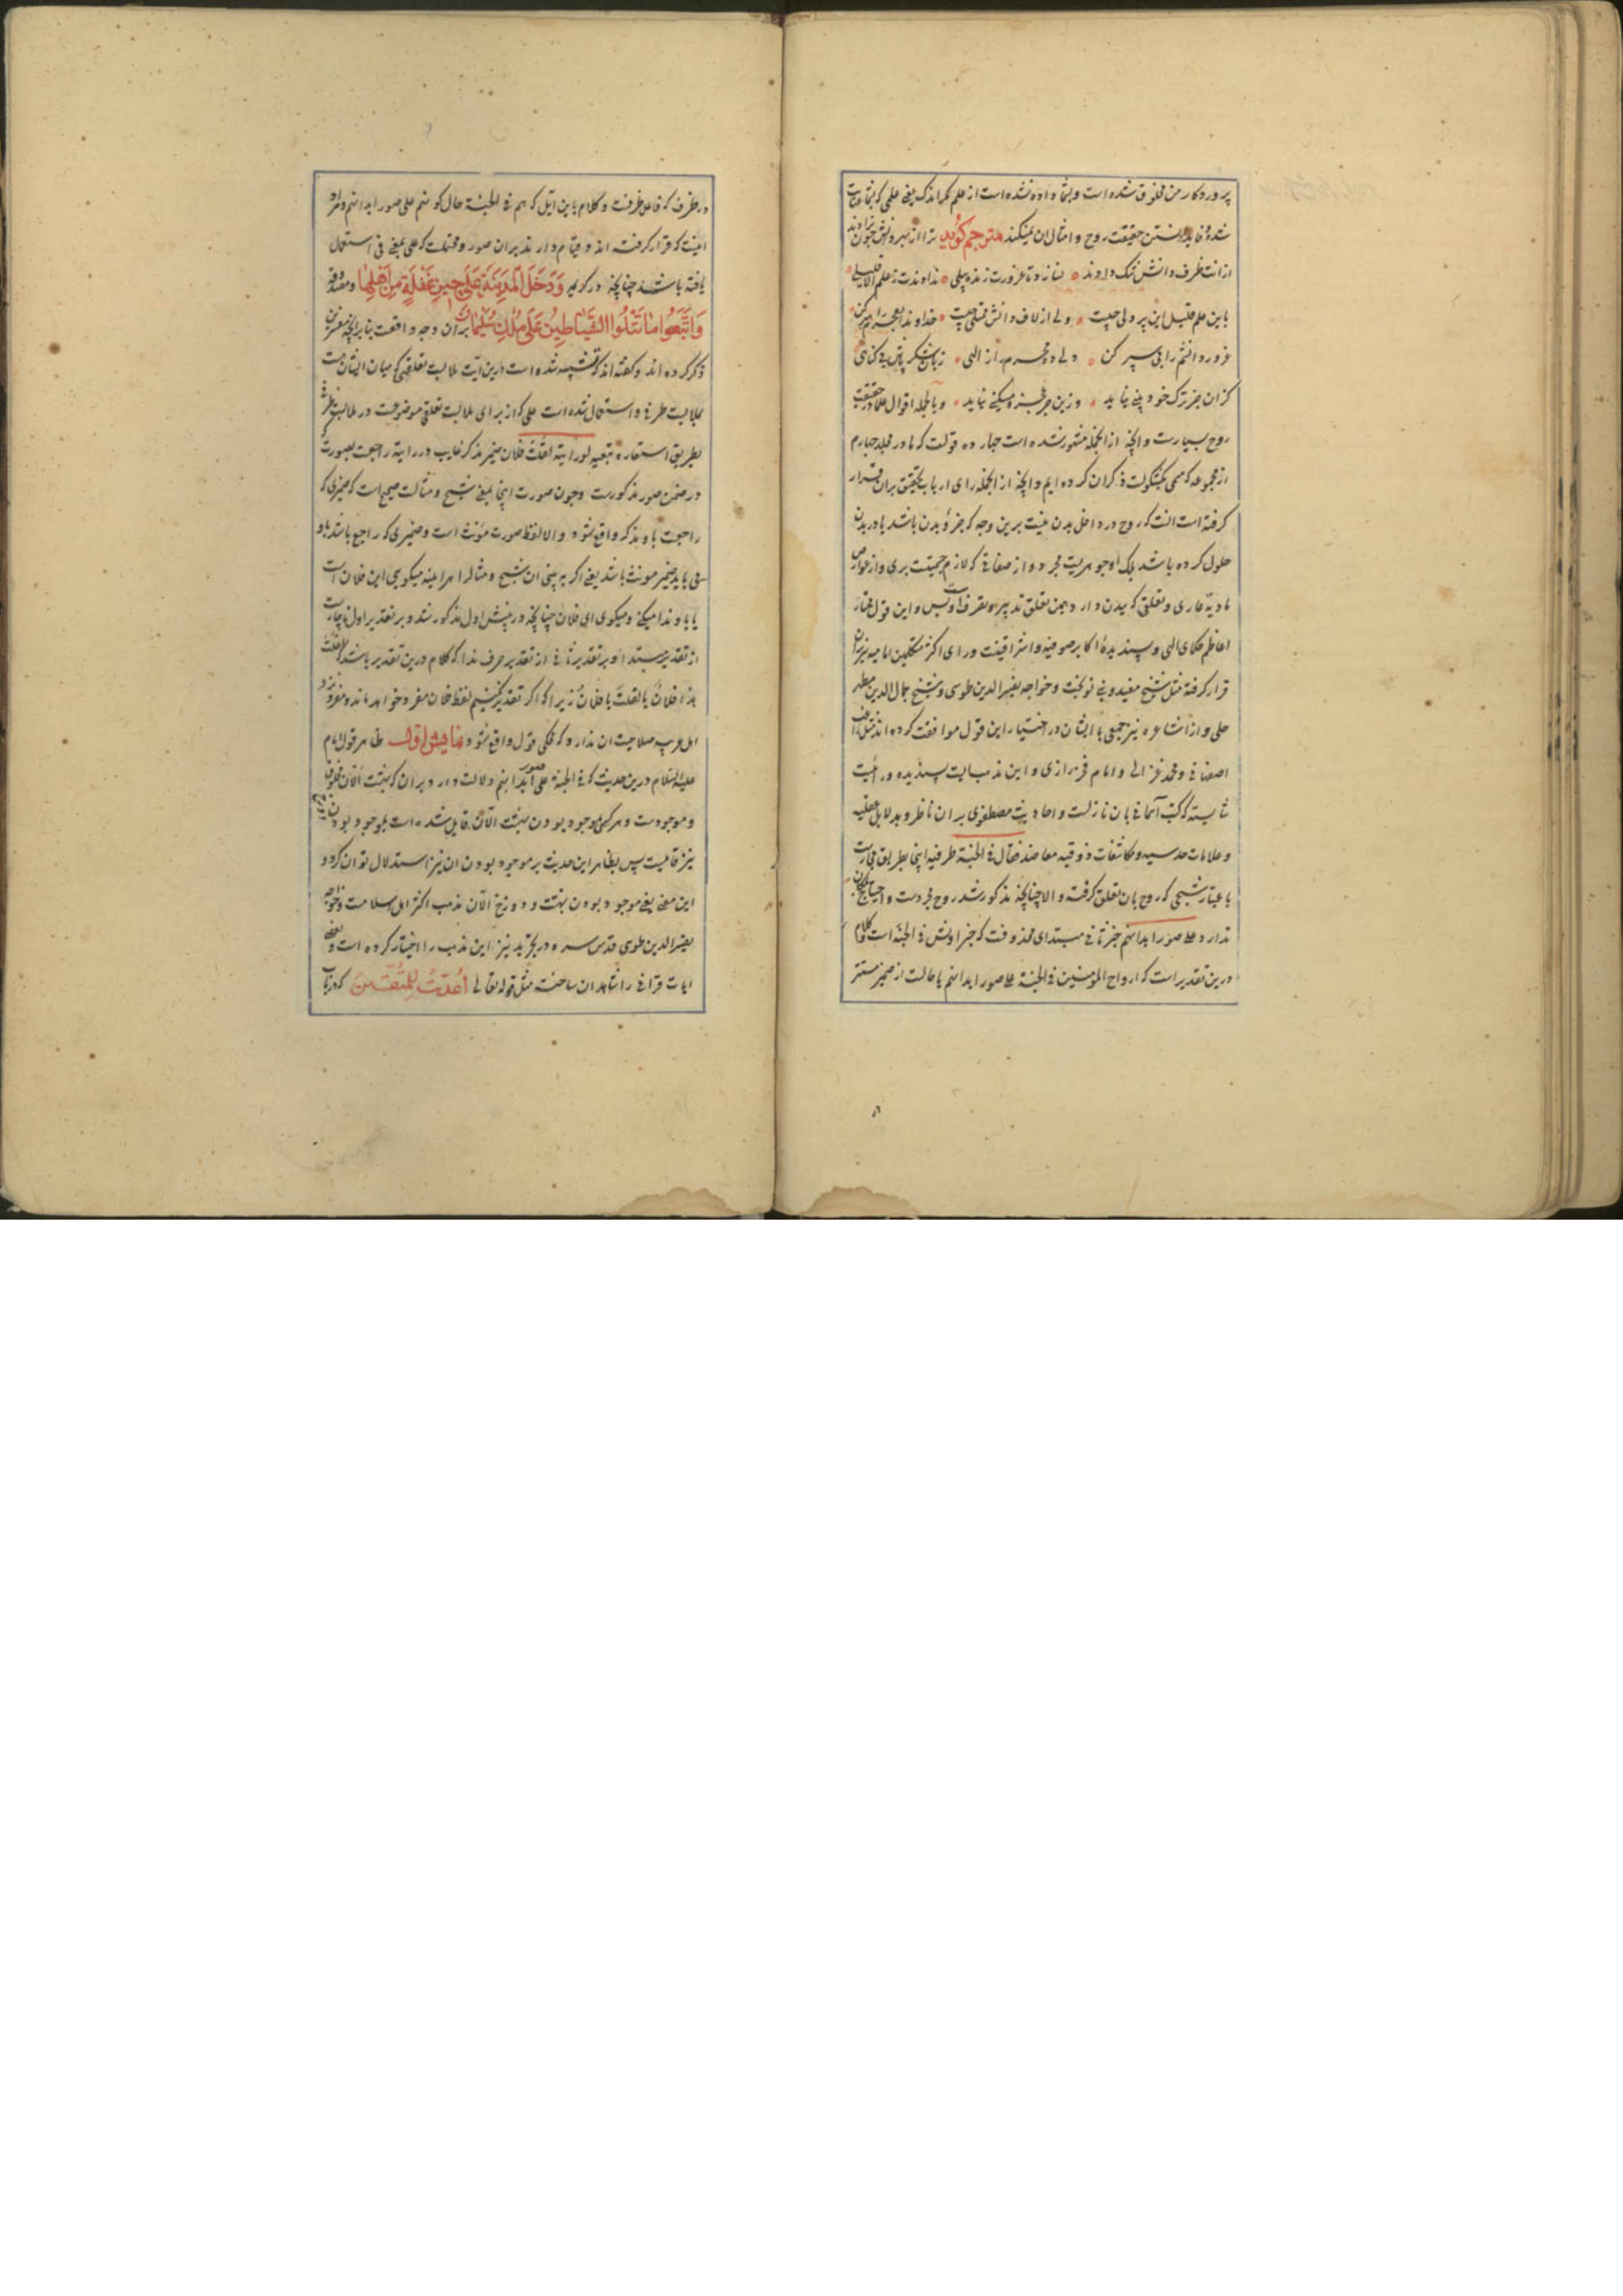 پروردکار من مخلوق شده است و بشما داده نشده است از علم مکر اندک یعنی علمی که بشما
شده فایده دانستن حقیقت روح و امثال ان نمیکند مترجم کوید ترا از بهر دانش چون
ازانت ظرف دانش تنک دادند نداوندت ز علم الا قلیلی
باین علم قلیل این پر دلی چیست ولی از لاف دانش خداوندا
غرور دانشم را پی سپر کن دلی ده محرم راز الهی زبان
کزان جز ترک خود بینی نیاید وزین جز عجز و مسکینی نیاید و بالجمله اقوال علما در حقیقت
روح بسیارست و انچه از انجمله مشهور شده است چهارده قولست که ما در مجلد چهارم
از مجموعه که مسمی بکشکولست ذکر ان کرده ایم و انچه از انجمله رای ارباب تحقیق بران قرار
کرفته است انست که روح در داخل بدن نیست برین وجه که جزؤ بدن باشد یا در بدن
حلول کرده باشد بلکه او جوهریست مجرد و از صفاتی که لازم جسمیت بری و از خواص
مادیه عاری و تعلقی که ببدن دارد همین تعلق تدبیر و تصرف است و بس و این قول مختار
اعاظم حکمای الهی و پسندیدهٔ اکابر صوفیه و اشراقینست و رای اکثر متکلمین امامیه نیز بران
قرار کرفته مثل شیخ مفید و بنی نوبخت و خواجه نصیرالدین طوسی و شیخ جمال الدین مطهر
حلی و از اشاعره نیز جمعی با ایشان در اختیار این قول موافقت کرده اند مثل راغب
اصفهانی و محمد غزالی و امام فخر رازی و این مذهبیست پسندیده و رائیست
شایسته که کتب آسمانی بان نازلست و احادیث مصطفوی بران ناظر و بدلایل عقلیه
و علامات حدسیه و مکاشفات ذوقیه معاضد فقال فی الجنة ظرفیه اینجا بطریق مجازست
باعتبار شبحی که روح بان تعلق کرفته و الا چنانچه مذکور شد روح مجردست و احتیاج بمکان
ندارد علی صور ابدانهم خبر ثانی مبتدای محذوفست که خبر اولش فی الجنة است و کلام
درین تقدیر است که ارواح المؤمنین فی الجنة علی صور ابدانهم یا حالت از ضمیر مستتر
در ظرف که فاعل ظرفست و کلام باین آیل که هم فی الجنة حال کونهم علی صور ابدانهم و مراد
اینست که قرار کرفته اند و قیام دارند بران صور و محتملست که علی بمعنی فی استعمال
یافته باشد چنانچه در کریمه وَدَخَلَ الْمَدِينَةَ عَلَى حِينِ غَفْلَةٍ مِنْ أَهْلِهَا و
وَاتَّبَعُوا مَا تَتْلُوا الشَّيَاطِينُ عَلَى مُلْكِ سُلَيْمَانَ بران وجه واقعست بنابر آنچه مفسرین
ذکر کرده اند و کفته اند که تشبیه شده است درین آیت ملابست تعلقی که میان ایشان هست
بملابست ظرفی و استعمال شده است علی که از برای ملابست تعلقی موضوعست در ملابست ظرفی
بطریق استعاره تبعیه لو رایته لقلت فلان ضمیر مذکر غایب در رایته راجعست بصورت که
در ضمن صور مذکورست و چون صورت اینجا بمعنی شبح و مثالست صحیح است که ضمیری که
راجعست باو مذکر واقع شود و الا لفظ صورت مؤنث است و ضمیری که راجع باشد باو
می باید ضمیر مونث باشد یعنی اکر به بینی ان شبح و مثال را هر اینه میکویی این فلان است
یا باو ندا میکنی و میکوی ای فلان چنانچه در پیش اول مذکور شد و بر تقدیر اول ناچارست
از تقدیر مبتدا و بر تقدیر ثانی از تقدیر حرف ندا که کلام درین تقدیر باشد لقلت
هذا فلانٌ یا لقلت یا فلانُ زیرا که اکر تقدیر نکنیم لفظ فلان مفرد خواهد ماند و مفرد نزد
اهل عرب صلاحیت ان ندارد که محکی قول واقع شود نمایش اول ظاهر قول امام
علیه السلام درین حدیث که فی الجنة علی صور ابدانهم دلالت دارد بران که بهشت الآن مخلوق
و موجودست و هر که بموجود بودن بهشت الآن قایل شده است بموجود بودن
نیز قایلست پس بظاهر این حدیث بر موجود بودن ان نیز استدلال توان کرد و
این معنی یعنی موجود بودن بهشت و دوزخ الآن مذهب اکثر اهل اسلامست و خواجه
نصیرالدین طوسی قدس سره در تجرید نیز این مذهب را اختیار کرده است و بعضی
ایات قرانی را شاهد ان ساخته مثل قوله تعالی أُعِدَّتْ لِلْمُتَّقِينَ که در باب